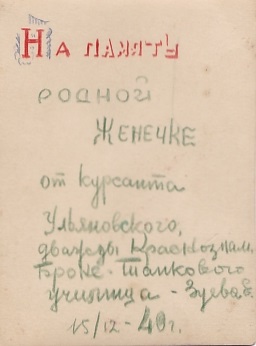 На память
родной
Женечке
от курсанта
Ульяновского,
дважды Краснознам.
Броне-Танкового
училища - Зуева Б.
15/12-40г.